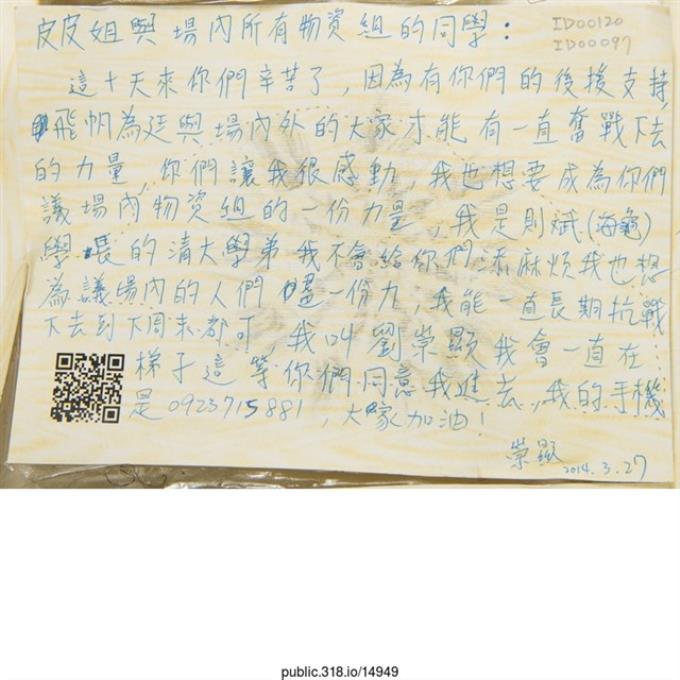 皮皮姐與場內所有物資組的同學：
ID00120
ID00097
這十天來你們辛苦了，因為有你們的後援支持，
飛帆為廷與場內外的大家才能有一直奮戰下去
的力量，你們讓我很感動，我也想要成為你們
議場內物資組的一份力量，我是則斌(海龜)
學長的清大學弟我不會給你們添麻煩我也想
為議場內的人們盡一份力，我能一直長期抗戰
下去到下周末都可，我叫劉崇顯我會一直在
梯子這等你們同意我進去，我的手機
是0923715881，大家加油！
崇顯
2014.3.27
public.318.io/14949